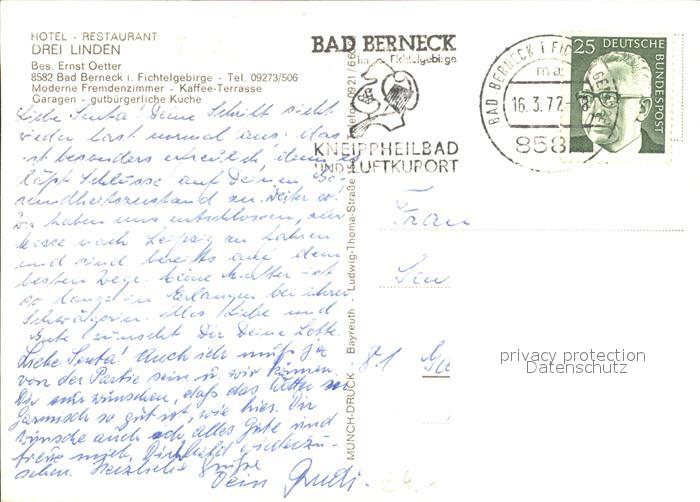 HOTEL - RESTAURANT
DREI LINDEN
Bes. Ernst Oetter
8582 Bad Berneck i. Fichtelgebirge - Tel. 09273/506
Moderne Fremdenzimmer - Kaffee-Terrasse
Garagen - gutbürgerliche Küche
BAD BERNECK
im Fichtelgebirge
KNEIPPHEILBAD
UND LUFTKURORT
BAD BERNECK i FICHTELGEB
ma
16.3.72-
858
25 DEUTSCHE
BUNDESPOST
Liebe Senta! Deine Schrift sieht
wieder fast normal aus, das
ist besonders erfreulich, denn es
läßt Schlüsse auf Deinen Ge-
sundheitszustand zu. Weiter so.
Wir haben uns entschlossen, zur
Messe nach Leipzig zu fahren
und sind bereits auf dem
besten Wege. Meine Mutter ist
so lange in Erlangen bei ihrer
Schwägerin. Alles Liebe und
Gute wünscht Dir Deine Lotte.
Liebe Senta! Auch ich muß ja
von der Partie sein u. wir können
Dir nur wünschen, daß das Wetter in
Garmisch so gut ist, wie hier. Dir
wünsche auch ich alles Gute und
freue mich, Dich bald wiederzu-
sehen. Herzliche Grüße
Dein Rudi.
MÜNCH-DRUCK - Bayreuth - Ludwig-Thoma-Straße Telefon 0921/66
Frau
Sen
81 Ga
privacy protection
Datenschutz